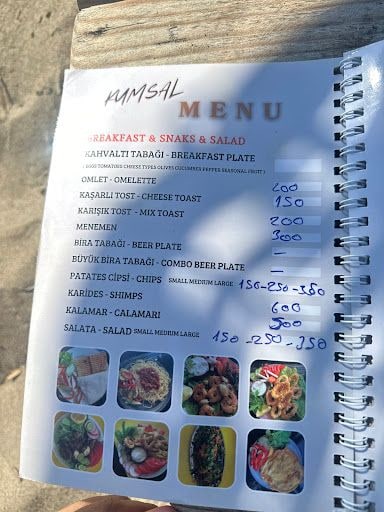 KUMSAL
MENU
BREAKFAST & SNAKS & SALAD
KAHVALTI TABAĞI - BREAKFAST PLATE
( EGGS TOMATOES CHEESE TYPES OLIVES CUCUMBER PEPPER SEASONAL FRUIT )
OMLET - OMELETTE 200
KAŞARLI TOST - CHEESE TOAST 150
KARIŞIK TOST - MIX TOAST 200
MENEMEN 300
BİRA TABAĞI - BEER PLATE -
BÜYÜK BİRA TABAĞI - COMBO BEER PLATE -
PATATES CİPSİ - CHIPS SMALL MEDIUM LARGE 150-250-350
KARİDES - SHIMPS 600
KALAMAR - CALAMARI 500
SALATA - SALAD SMALL MEDIUM LARGE 150-250-350